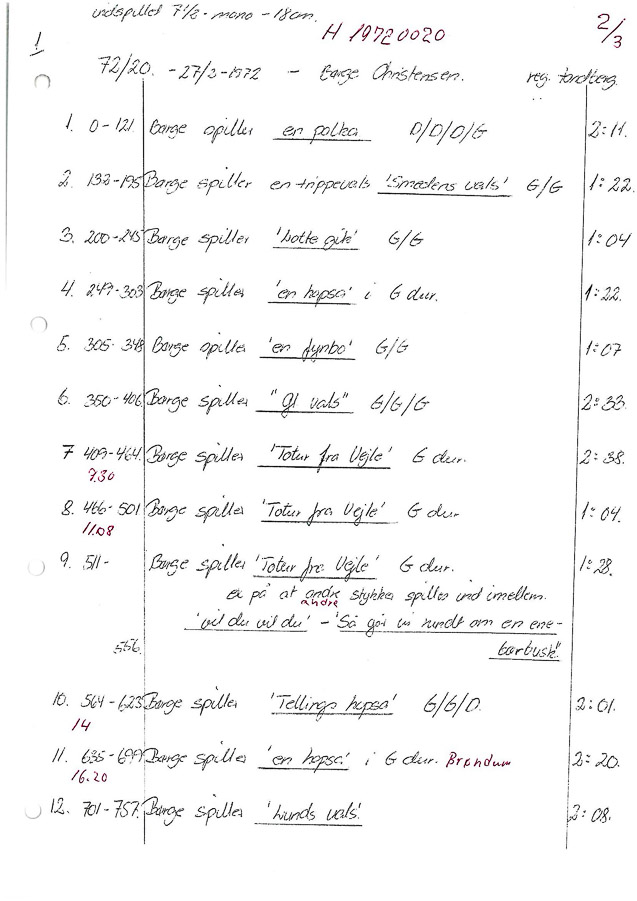 indspillet 7½ - mono - 18 cm.
H 19720020
2/3
1
72/20. - 27/3-1972 - Børge Christensen. reg. tandberg.
1. 0-121. Børge spiller en polka D/D/D/G 2:11.
2. 132-195 Børge spiller en trippevals 'Smedens vals' G/G 1:22.
3. 200-245 Børge spiller 'Lotte gik' G/G 1:04
4. 249-303 Børge spiller 'en hopsa' i G dur. 1:22.
5. 305-348 Børge spiller 'en fynbo' G/G 1:07
6. 350-406 Børge spiller "Gl vals" G/G/G 2:33.
7 409-464. Børge spiller 'Totur fra Vejle' G dur. 2:38.
7.30
8. 466-501 Børge spiller 'Totur fra Vejle' G dur 1:04.
11.08
9. 511- Børge spiller 'Totur fra Vejle' G dur. 1:28.
ex på at andre stykker spilles ind imellem.
andre
'vil du vil du' - 'Så går vi rundt om en ene-
556. bærbusk".
10. 564-623 Børge spiller 'Tellings hopsa' G/G/D. 2:01.
14
11. 635-699 Børge spiller 'en hopsa' i G dur. Brøndum 2:20.
16.20
12. 701-757. Børge spiller 'Lunds vals'. 2:08.